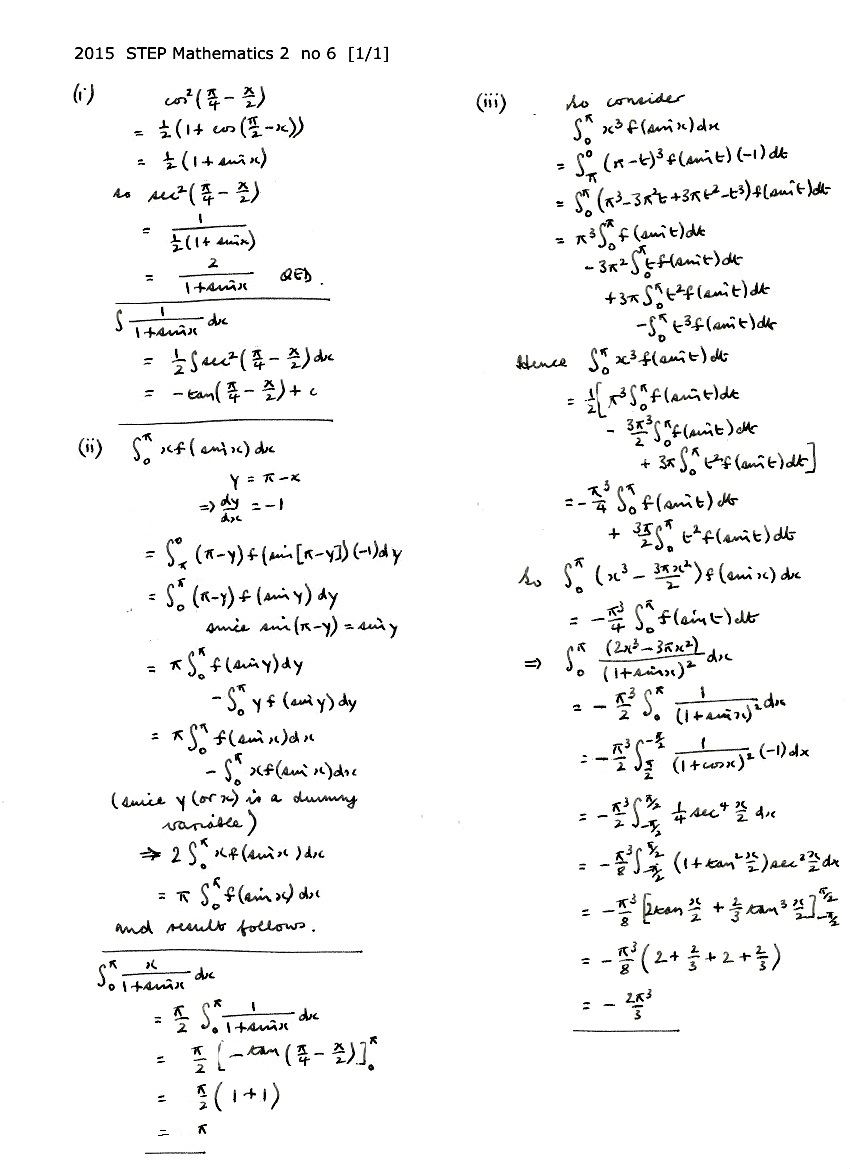 2015 STEP Mathematics 2 no 6 [1/1]
(i) cos²(π/4 − x/2)
= ½(1 + cos(π/2 − x))
= ½(1 + sin x)
so sec²(π/4 − x/2)
= 1/(½(1 + sin x))
= 2/(1 + sin x) QED.
∫ 1/(1 + sin x) dx
= ½∫sec²(π/4 − x/2) dx
= −tan(π/4 − x/2) + c
(ii) ∫₀^π x f(sin x) dx
y = π − x
⇒ dy/dx = −1
= ∫_π^0 (π−y) f(sin[π−y]) (−1) dy
= ∫₀^π (π−y) f(sin y) dy
since sin(π−y) = sin y
= π∫₀^π f(sin y) dy
− ∫₀^π y f(sin y) dy
= π∫₀^π f(sin x) dx
− ∫₀^π x f(sin x) dx
(since y (or x) is a dummy
variable)
⇒ 2∫₀^π x f(sin x) dx
= π ∫₀^π f(sin x) dx
and result follows.
∫₀^π x/(1 + sin x) dx
= π/2 ∫₀^π 1/(1 + sin x) dx
= π/2 [−tan(π/4 − x/2)]₀^π
= π/2 (1 + 1)
= π
(iii) So consider
∫₀^π x³ f(sin x) dx
= ∫_π^0 (π−t)³ f(sin t) (−1) dt
= ∫₀^π (π³ − 3π²t + 3πt² − t³) f(sin t) dt
= π³∫₀^π f(sin t) dt
− 3π² ∫₀^π t f(sin t) dt
+ 3π ∫₀^π t² f(sin t) dt
− ∫₀^π t³ f(sin t) dt
Hence ∫₀^π x³ f(sin t) dt
= ½[π³∫₀^π f(sin t) dt
− 3π³/2 ∫₀^π f(sin t) dt
+ 3π ∫₀^π t² f(sin t) dt]
= −π³/4 ∫₀^π f(sin t) dt
+ 3π/2 ∫₀^π t² f(sin t) dt
So ∫₀^π (x³ − 3πx²/2) f(sin x) dx
= −π³/4 ∫₀^π f(sin t) dt
⇒ ∫₀^π (2x³ − 3πx²)/(1 + sin x)² dx
= −π³/2 ∫₀^π 1/(1 + sin x)² dx
= −π³/2 ∫_{π/2}^{−π/2} 1/(1 + cos x)² (−1) dx
= −π³/2 ∫_{−π/2}^{π/2} ¼ sec⁴ x/2 dx
= −π³/8 ∫_{−π/2}^{π/2} (1 + tan² x/2) sec² x/2 dx
= −π³/8 [2tan x/2 + 2/3 tan³ x/2]_{−π/2}^{π/2}
= −π³/8 (2 + 2/3 + 2 + 2/3)
= −2π³/3